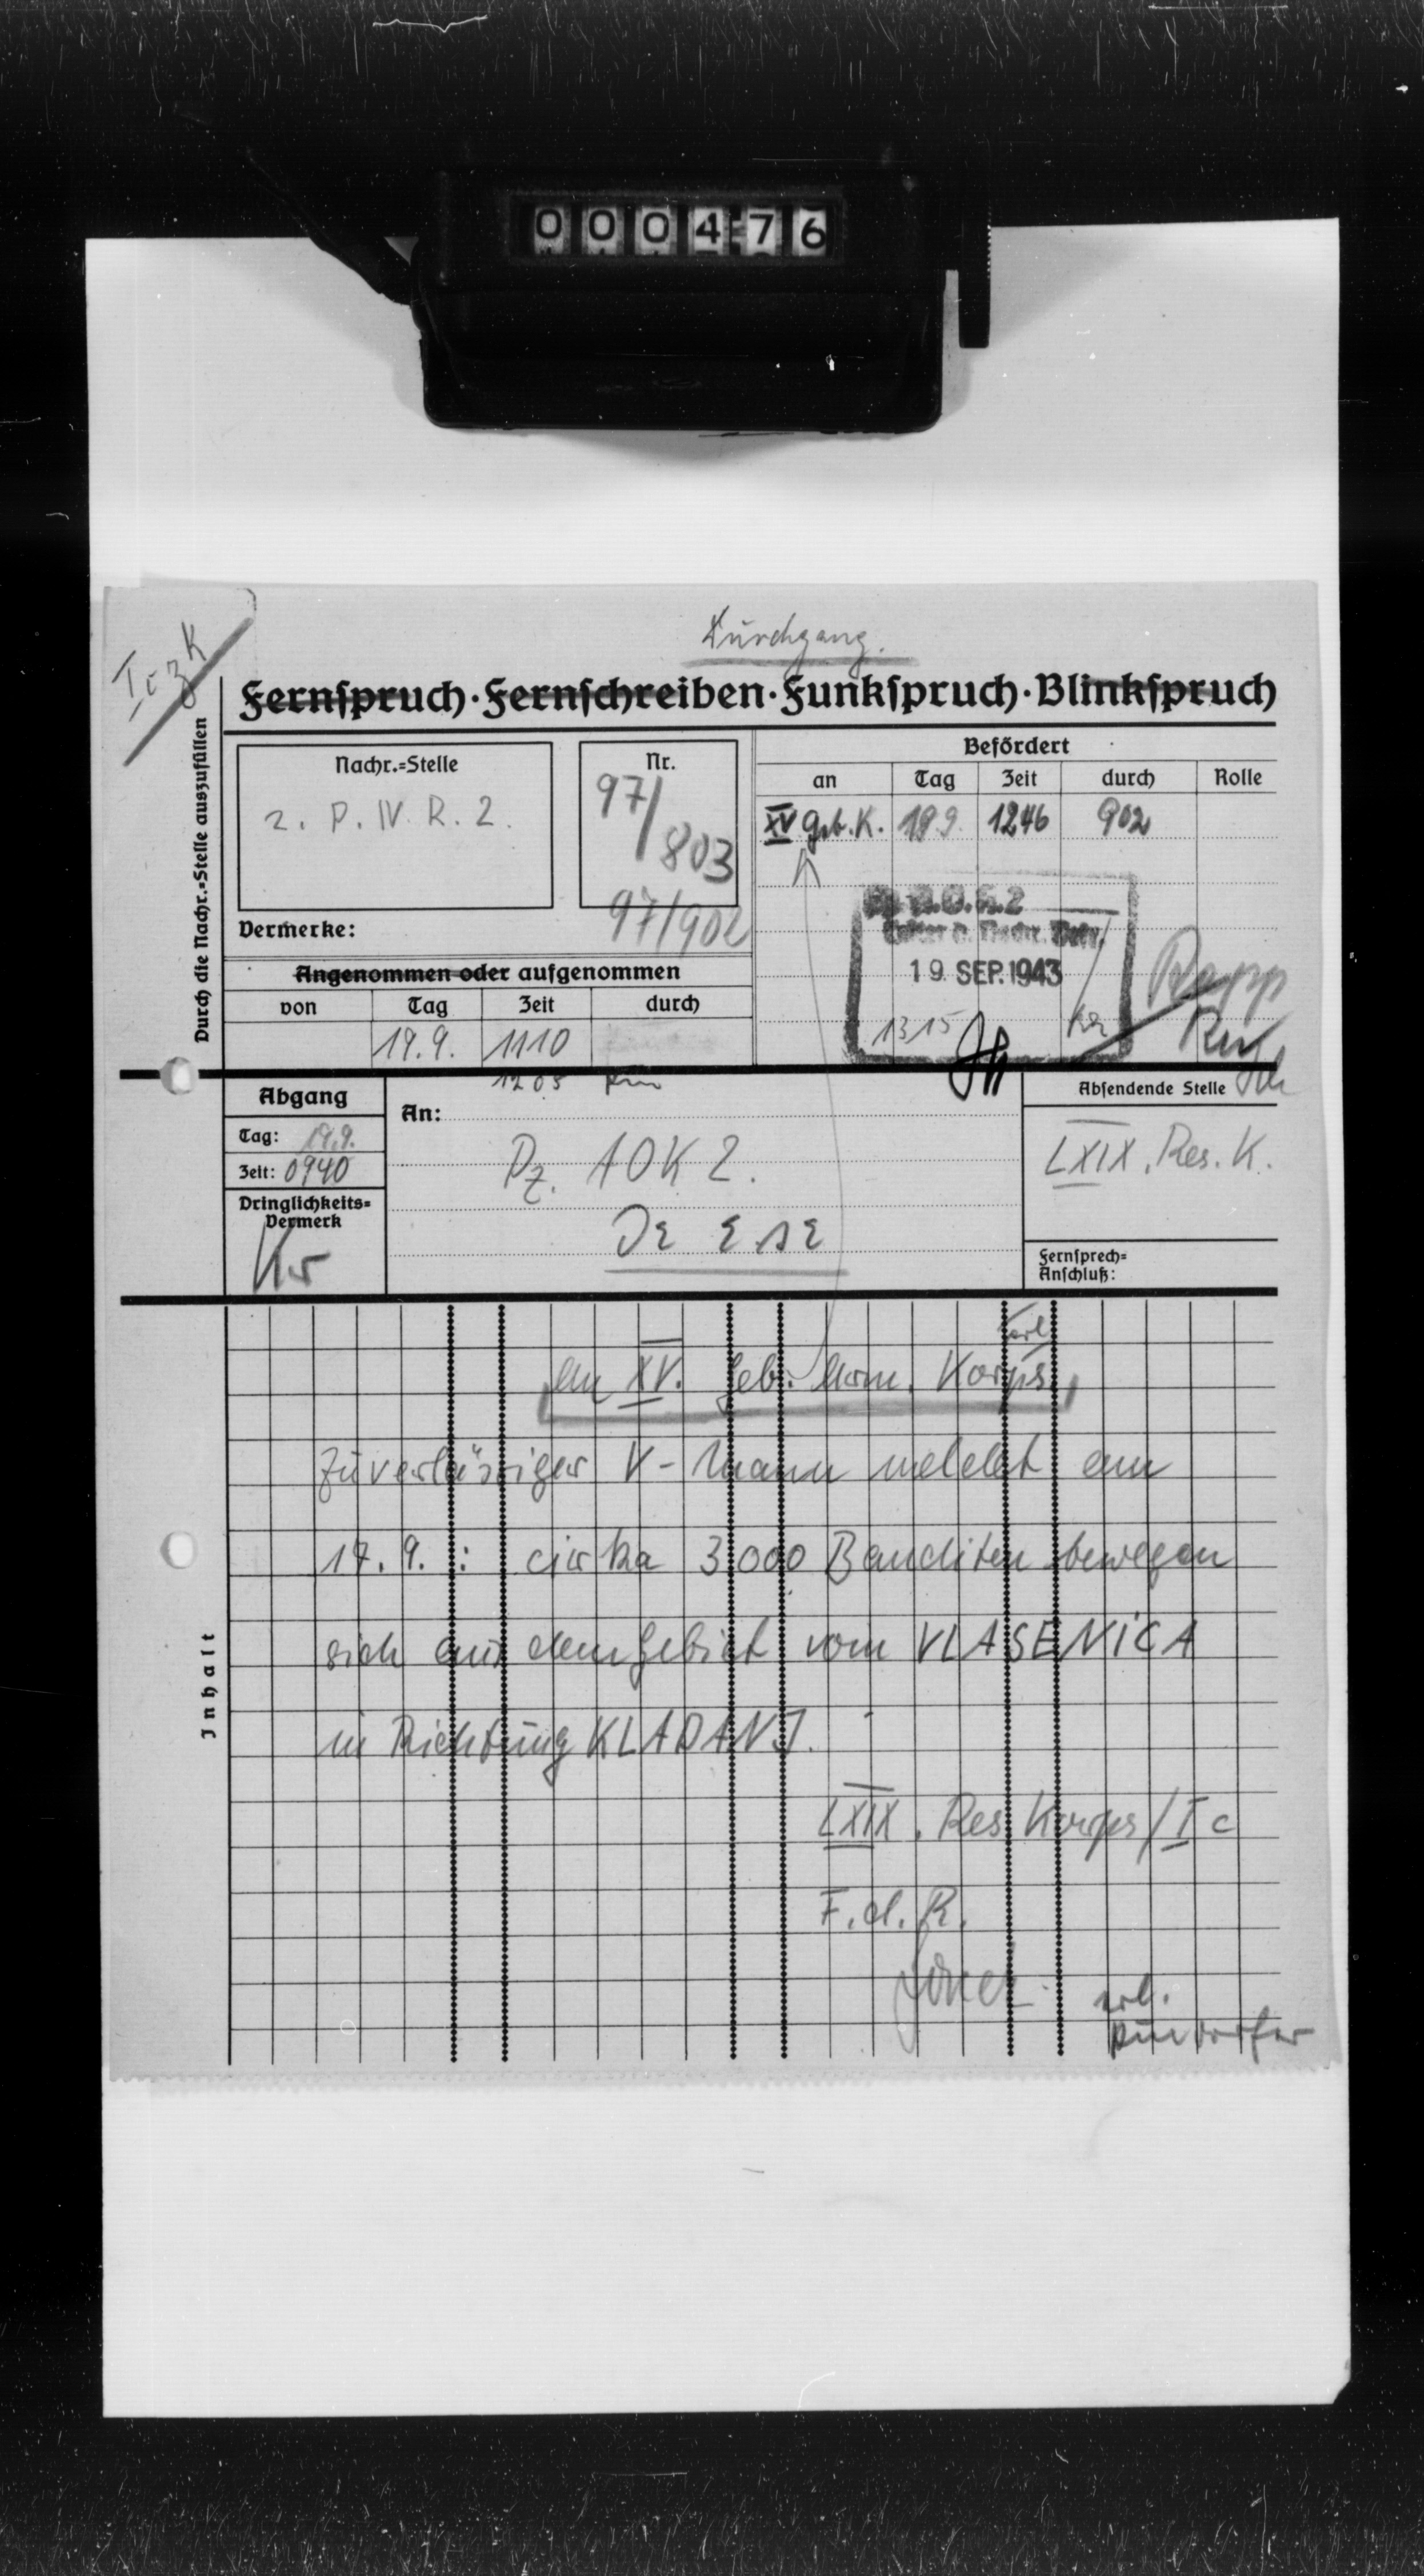 000476
Durchgang.
Fernspruch · Fernschreiben · Funkspruch · Blinkspruch
Durch die Nachr.=Stelle auszufüllen
Nachr.=Stelle
2. P. IV. R. 2.
Nr.
97/803
97/902
Vermerke:
Angenommen oder aufgenommen
von Tag Zeit durch
19.9. 1110
1205
Befördert
an Tag Zeit durch Rolle
XV Geb. K. 19.9. 1246 902
19. SEP. 1943
1315
Abgang
Tag: 19.9.
Zeit: 0940
Dringlichkeits=
Vermerk
Kr
An:
Pz. AOK 2.
Absendende Stelle
LXIX. Res. K.
Fernsprech=
Anschluß:
Inhalt
An XV. Geb. Arm. Korps
Zuverlässiger V-Mann meldet am
17.9.: cirka 3000 Banditen bewegen
sich aus dem Gebiet vom VLASENICA
in Richtung KLADANJ.
LXIX. Res Korps/Ic
F.d.R.
erl.